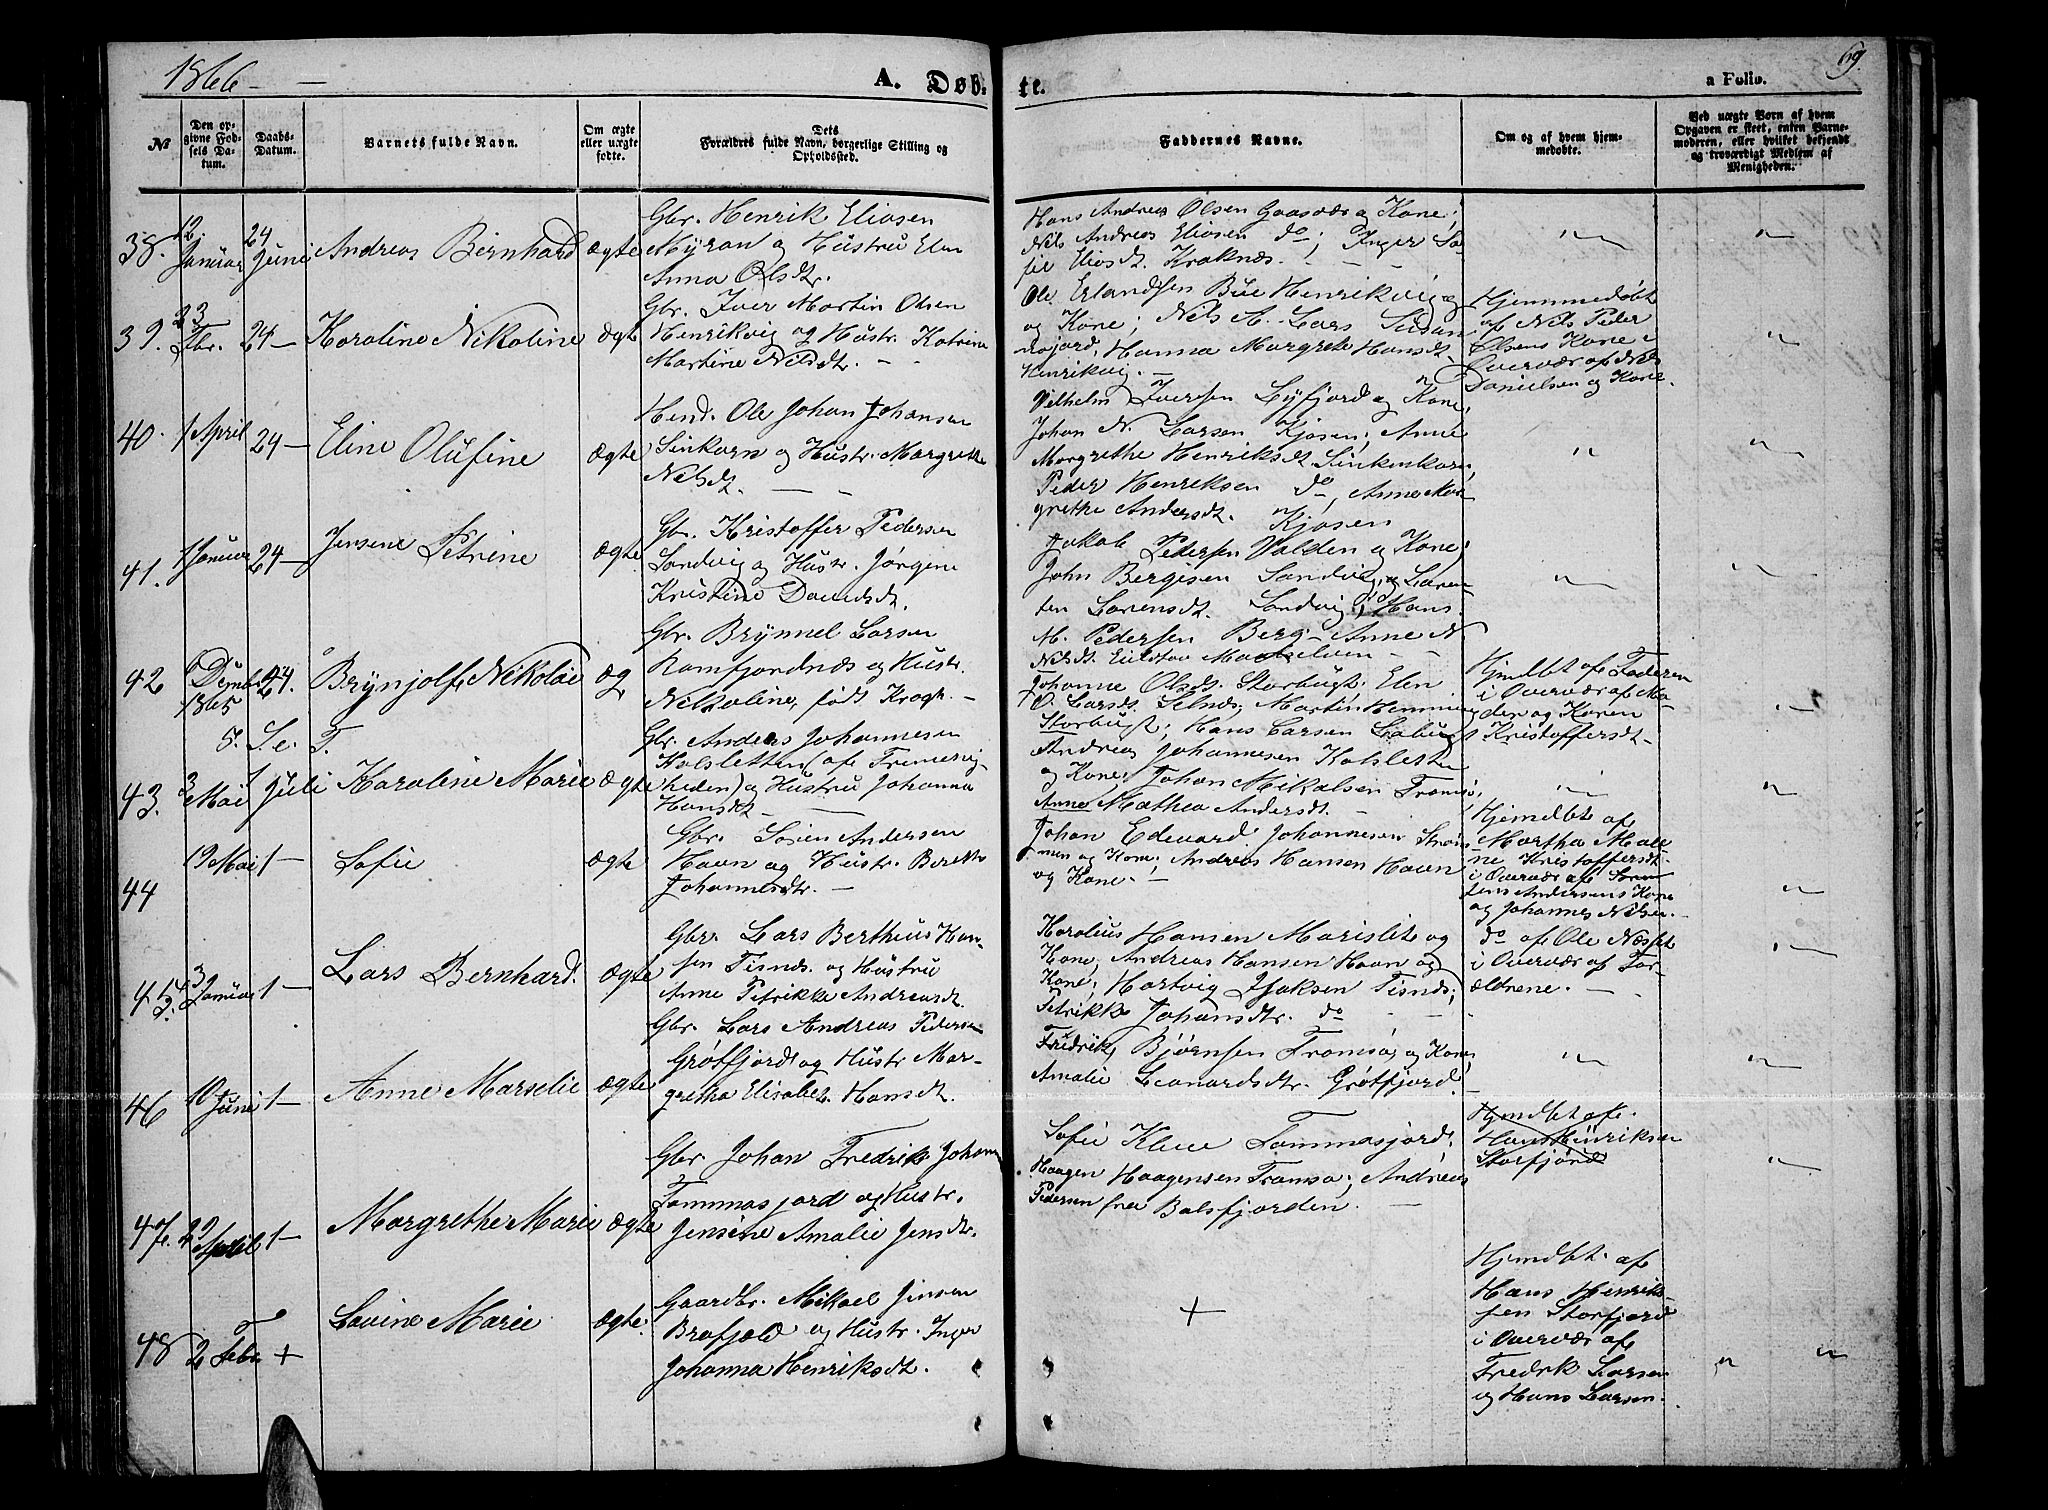 1866 —
A. Døb-
te.
a Folio.
69.
№
Den op-
givne Fød-
sels Da-
tum.
Daabs-
Datum.
Barnets fulde Navn.
Om ægte
eller uægte
fødte.
Dets
Forældres fulde Navn, borgerlige Stilling og
Opholdssted.
Faddernes Navne.
Om og af hvem hjem-
medøbte.
Ved uægte Børn af hvem
Opgaven er skeet, enten Barne-
moderen, eller hvilket bekjendt
og troværdigt Medlem af
Menigheden.
38. 12 Januar 24 Juni Andreas Bernhard ægte
Gbr. Henrik Eliasen
Myran og Hustru Elen
Anna Olsdt.
Hans Andreas Olsen Gaasvær og Kone;
Nils Andreas Eliasen do; Inger So-
fie Eliasdt. Kraknæs. — —
" "
39. 23 Fbr. 24 — Karoline Nikoline ægte
Gbr. Iver Martin Olsen
Henrikvig og Hustr. Katrine
Martine Nilsdt. —
Ole Erlandsen Bue Henrikvig
og Kone; Nils A. Lars
Hanna Margrete Hansdt.
Henrikvig. —
Hjemmedøbt
af Nils Peder
Olsens Kone i
Overvær af Nils
Danielsen og Kone.
"
40. 1 April 24 — Eline Olufine ægte
Hmd. Ole Johan Johansen
Sinkarn og Hustr. Margrethe
Nilsdt. — —
Vilhelm Iversen Lyfjord og Kone,
Johan N. Larsen Kjosen; Anne
Margrethe Henriksdt Sinkenkarn,
Peder Henriksen do, Anne Mar-
grethe Andersdt. Kjosen
" "
41. 1 Januar 24 — Jensine Petrine ægte
Gbr. Kristoffer Pedersen
Sandvig og Hustr. Jørgine
Kristine Davidsdt.
Jakob Pedersen Valden og Kone;
John Bergisen Sandvig, og Laren-
ten Larensdt. Sandvig; Hans
M. Pedersen Berg — Anne N.
Nilsdt. Malselven — —
" "
42 6 Dcmbr 1865 24. Brynjolf Nikolai æg
Gbr. Brynnel Larsen
Ramfjordnæs og Hustr.
Nikoline, født Krogh. —
Johanne Olsdt. Storbugt. Elen
O. Larsdt. Selnæs; Martin Hemming
Storbugt; Hans Larsen
Hjmdbt af Faderen
i Overvær af Mo-
der og Karen
Kristoffersdt —
"
5. S. e. T.
43. 3 Mai 1 Juli Karoline Marie ægte
Gbr. Andreas Johannesen
Kalsletten (af Frimenig-
heden) og Hustru Johanna
Hansdt —
Andreas Johannesen Kalsletten
og Kone, Johan Mikalsen Tromsø,
Anne Mathea Andersdt. —
" "
44 19 Mai 1 — Sofie ægte
Gbr. Søren Andersen
Havn og Hustr. Berethe
Johannesdtr. —
Johan Edevard Johannesen Strøm-
men og Kone; Andreas Hansen Havn
og Kone. —
Hjemdbt af
Martha Male-
ne Kristoffersdt.
i Overvær af
Andersens Kone
og Johannes Nilsen.
"
45. 3 Januar 1 — Lars Bernhard. ægte
Gbr. Lars Berthius Han-
sen Tisnæs. og Hustru
Anne Petrikke Andreasdt.
Karolius Hansen Marislet og
Kone, Andreas Hansen Havn og
Kone; Hartvig Isaksen Tisnæs;
Petrikke Johansdtr. do — — —
do af Ole Næsset
i Overvær af For-
ældrene. —
"
46 10 Juni 1 — Anne Marselie ægte
Gbr. Lars Andreas Pedersen
Grøtfjord og Hustr Mar-
gretha Elisabet Hansdt.
Fredrik Bjørnsen Tromsø og Kone,
Amalie Leonardsdtr. Grøtfjord. —
" "
47. 29 April 1 — Margrethe Marie ægte
Gbr Johan Fredrik Johans
Tommasjord og Hustr.
Jensine Amalie Jensdtr.
Sofie Klæve Tommasjord;
Haagen Haagensen Tromsø; Andreas
Pedersen fra Balsfjorden. —
Hjmdbt af
Hans Henriksen
Storfjord
"
48 2 Febr + Lavine Marie ægte.
Gaardbr. Mikael Jensen
Brefjeld og Hustr. Inger
Johanna Henriksdt.
+
Hjemdbt. af
Hans Henrik-
sen Storfjord
i Overvær af
Fredrik Larsen
og Hans Larsen.
" "